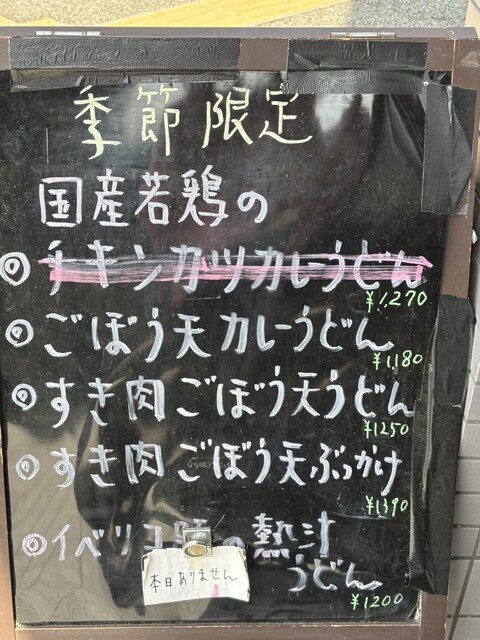 季節限定
国産若鶏の
◎チキンカツカレーうどん
¥1,270
◎ごぼう天カレーうどん
¥1,180
◎すき肉ごぼう天うどん
¥1250
◎すき肉ごぼう天ぶっかけ
¥1390
◎イベリコ の熱汁
うどん
¥1200
本日ありません